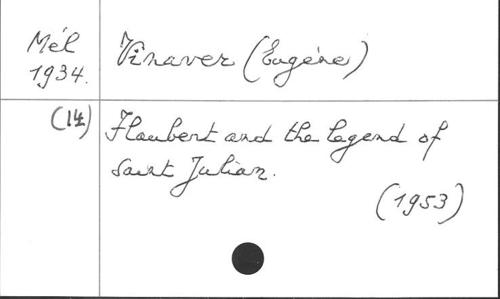 Mél
1934.
Vinaver (Eugène)
(14)
Flaubert and the legend of
Saint Julian.
(1953)